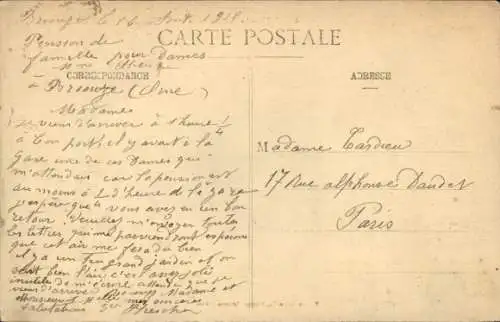 le 16
CARTE POSTALE
Pension de
famille pour Dames
CORRESPONDANCE
ADRESSE
à Briouze (Orne)
Madame
je viens d'arriver à 1 heure 1/4
à bon port, il y avait à la
gare une de ces Dames qui
m'attendait car la pension est
au moins à 1/2 heure de la gare
j'espère que vous avez eu un bon
retour. Veuillez m'envoyer toutes
les lettres qui me parviendront espérons
que cet air me fera du bien
il y a un très grand jardin et on
bien l'air, c'est assez joli
inutile de m'écrire que je
viens d'arriver Madame et
mes sincères
salutations
Madame Tardieu
17 Rue Alphonse Daudet
Paris